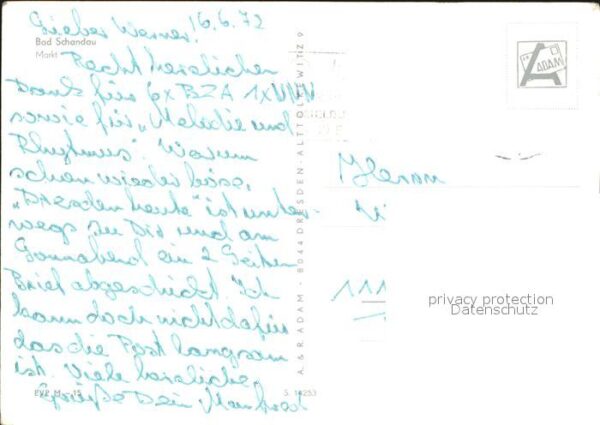 Lieber Werner! 16.6.72
Bad Schandau
Markt
Recht herzlichen
Dank für 6x BZA 1x
sowie für „Melodie und
Rhythmus". Warum
schon wieder böse,
„Dresden heute" ist unter-
wegs zu Dir und am
Sonnabend ein 2 Seiten
Brief abgeschickt. Ich
kann doch nicht dafür
das die Post langsam
ist. Viele herzliche
EVP M -,15
Grüße Dein Manfred
S 14253
A. & R. ADAM - 8044 DRESDEN-ALTTOLKEWITZ 9
ADAM
Herrn
111
privacy protection
Datenschutz